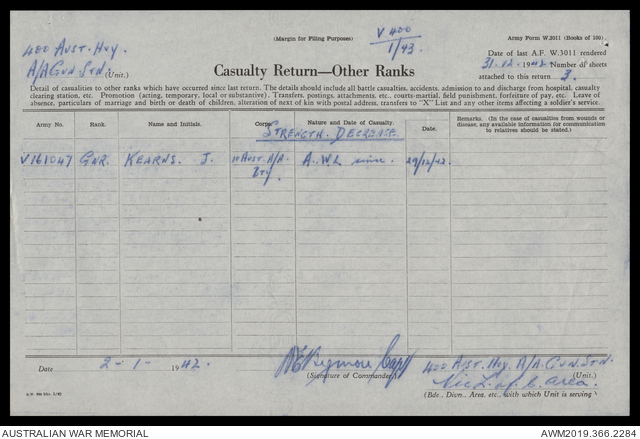 (Margin for Filing Purposes)
V 400
1/43
Army Form W.3011 (Books of 100)
400 AUST. HVY.
A/A GUN STN. (Unit.)
Date of last A.F. W.3011 rendered
31.12.1942 Number of sheets
attached to this return 3.
Casualty Return—Other Ranks
Detail of casualties to other ranks which have occurred since last return. The details should include all battle casualties, accidents, admission to and discharge from hospital, casualty
clearing station, etc. Promotion (acting, temporary, local or substantive). Transfers, postings, attachments, etc., courts-martial, field punishment, forfeiture of pay, etc. Leave of
absence, particulars of marriage and birth or death of children, alteration of next of kin with postal address, transfers to "X" List and any other items affecting a soldier's service.
Army No. Rank. Name and Initials. Corps. Nature and Date of Casualty. Date. Remarks. (In the case of casualties from wounds or disease, any available information for communication to relatives should be stated.)
STRENGTH. DECREASE.
V161047 GNR. KEARNS. J. AUST. A/A. BTY. A.W.L since. 29/12/42.
Date 2-1-1942.
(Signature of Commander) Capt
400 AUST. HVY. A/A. GUN. STN.
(Unit.)
Vic L of C area.
(Bde., Divn., Area, etc., with which Unit is serving)
AUSTRALIAN WAR MEMORIAL
AWM2019.366.2284